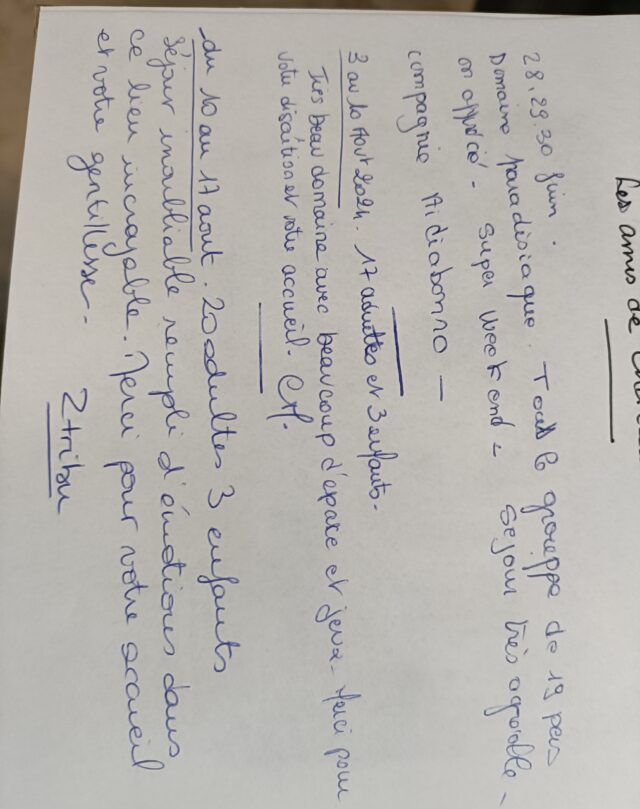 Les amis de
28.29.30 Juin.
Domaine paradisiaque. Tout le groeppe de 19 pers
on apprécié - Super Weekend - Sejour très agréable -
compagnie
3 au 10 Aout 2024. 17 adultes et 3 enfants.
Tres beau domaine avec beaucoup d'espace et jeux. Merci pour
votre discrétion et votre accueil.
du 10 au 17 aout. 20 adultes 3 enfants
Séjour inoubliable rempli d'émotions dans
ce lieu incroyable. Merci pour votre accueil
et votre gentillesse.
Ztribu